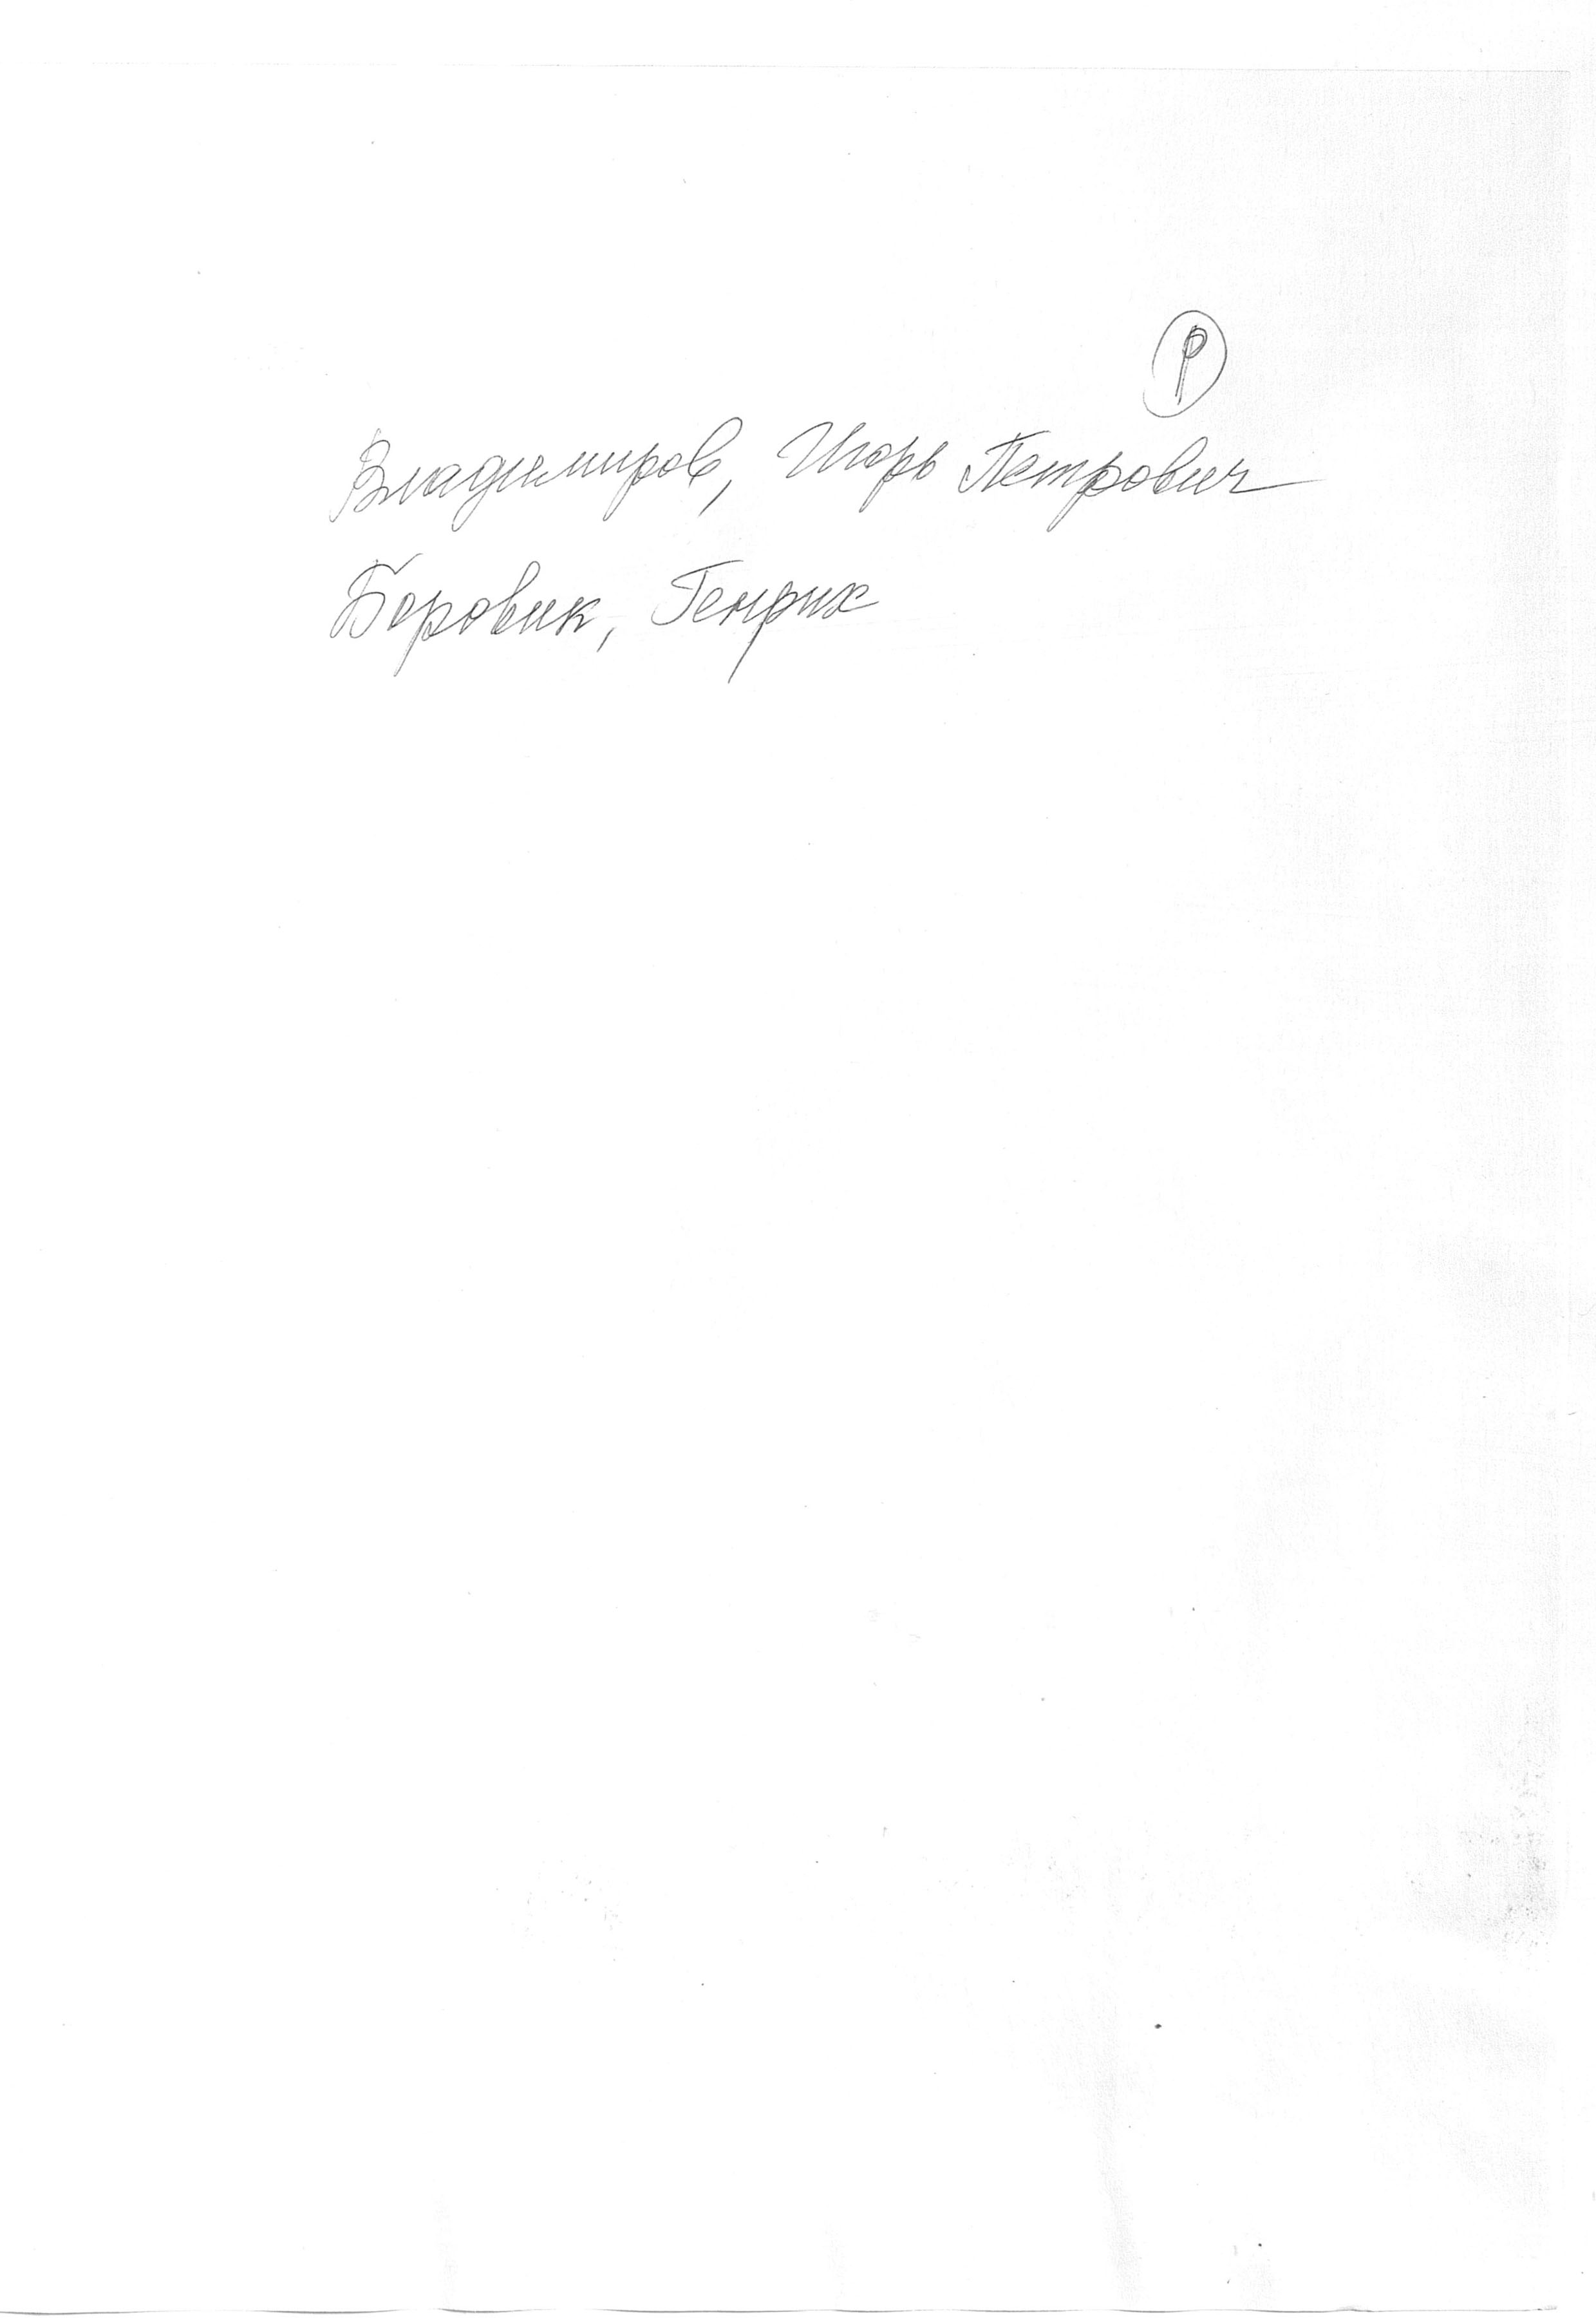 Р
Владимиров, Игорь Петрович
Боровик, Генрих